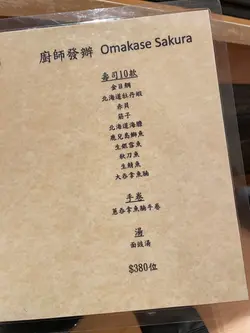 廚師發辦 Omakase Sakura
壽司10款
金目鯛
北海道牡丹蝦
赤貝
筋子
北海道海膽
鹿兒島鰤魚
生銀雪魚
秋刀魚
生鯖魚
大吞拿魚腩
手卷
蔥吞拿魚腩手卷
湯
面豉湯
$380位